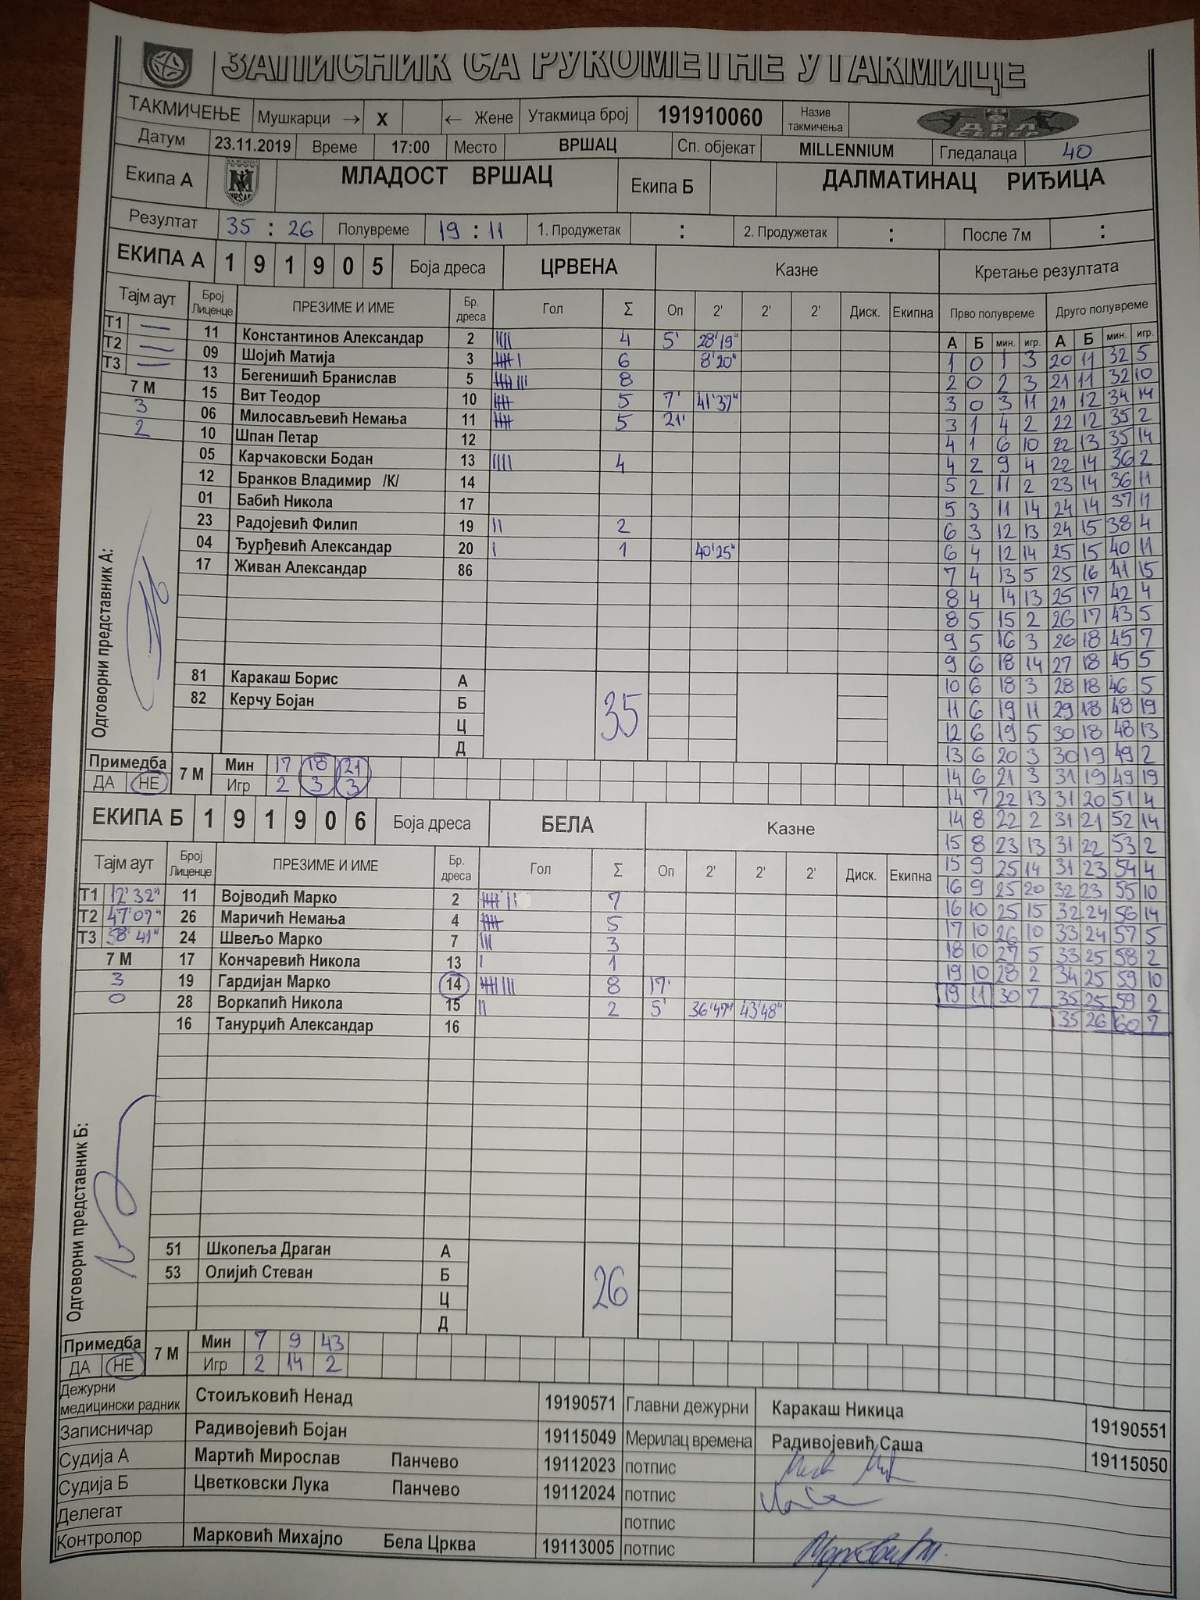 ЗАПИСНИК СА РУКОМЕТНЕ УТАКМИЦЕ
ТАКМИЧЕЊЕ Мушкарци → X ← Жене Утакмица број 191910060 Назив такмичења ДРЛ СЕВЕР
Датум 23.11.2019 Време 17:00 Место ВРШАЦ Сп. објекат MILLENNIUM Гледалаца 40
Екипа А МЛАДОСТ ВРШАЦ Екипа Б ДАЛМАТИНАЦ РИЂИЦА
Резултат 35 : 26 Полувреме 19 : 11 1. Продужетак : 2. Продужетак : После 7м :
ЕКИПА А 1 9 1 9 0 5 Боја дреса ЦРВЕНА Казне Кретање резултата
Тајм аут Број Лиценце ПРЕЗИМЕ И ИМЕ Бр. дреса Гол Σ Оп 2' 2' 2' Диск. Екипна Прво полувреме Друго полувреме
А Б мин. игр. А Б мин. игр.
Т1 — 11 Константинов Александар 2 IIII 4 5' 28'19"
Т2 — 09 Шојић Матија 3 IIIII I 6 8'20"
Т3 — 13 Бегенишић Бранислав 5 IIIII III 8
7 М 15 Вит Теодор 10 IIIII 5 7' 41'37"
3 06 Милосављевић Немања 11 IIIII 5 21'
2 10 Шпан Петар 12
05 Карчаковски Бодан 13 IIII 4
12 Бранков Владимир /К/ 14
01 Бабић Никола 17
23 Радојевић Филип 19 II 2
04 Ђурђевић Александар 20 I 1 40'25"
17 Живан Александар 86
Одговорни представник А:
81 Каракаш Борис А
82 Керчу Бојан Б
Ц
Д
35
Примедба ДА НЕ 7 М
Мин 17 18 21
Игр 2 3 3
1 0 1 3 20 11 32 5
2 0 2 3 21 11 32 10
3 0 3 11 21 12 34 14
3 1 4 2 22 12 35 2
4 1 6 10 22 13 35 14
4 2 9 4 22 14 36 2
5 2 11 2 23 14 36 11
5 3 11 14 24 14 37 11
6 3 12 13 24 15 38 4
6 4 12 14 25 15 40 11
7 4 13 5 25 16 41 15
8 4 14 13 25 17 42 4
8 5 15 2 26 17 43 5
9 5 16 3 26 18 45 7
9 6 18 14 27 18 45 5
10 6 18 3 28 18 46 5
11 6 19 11 29 18 48 19
12 6 19 5 30 18 48 13
13 6 20 3 30 19 49 2
14 6 21 3 31 19 49 19
14 7 22 13 31 20 51 4
14 8 22 2 31 21 52 14
15 8 23 13 31 22 53 2
15 9 25 14 31 23 54 4
16 9 25 20 32 23 55 10
16 10 25 15 32 24 56 14
17 10 26 10 33 24 57 5
18 10 27 5 33 25 58 2
19 10 28 2 34 25 59 10
19 11 30 7 35 25 59 2
35 26 60 7
ЕКИПА Б 1 9 1 9 0 6 Боја дреса БЕЛА Казне
Тајм аут Број Лиценце ПРЕЗИМЕ И ИМЕ Бр. дреса Гол Σ Оп 2' 2' 2' Диск. Екипна
Т1 12'32" 11 Војводић Марко 2 IIIII II 7
Т2 47'07" 26 Маричић Немања 4 IIIII 5
Т3 58'41" 24 Швељо Марко 7 III 3
7 М 17 Кончаревић Никола 13 I 1
3 19 Гардијан Марко 14 IIIII III 8 17'
0 28 Воркапић Никола 15 II 2 5' 36'47" 43'48"
16 Танурџић Александар 16
Одговорни представник Б:
51 Шкопеља Драган А
53 Олијић Стеван Б
Ц
Д
26
Примедба ДА НЕ 7 М
Мин 7 9 43
Игр 2 14 2
Дежурни медицински радник Стоиљковић Ненад 19190571 Главни дежурни Каракаш Никица 19190551
Записничар Радивојевић Бојан 19115049 Мерилац времена Радивојевић Саша 19115050
Судија А Мартић Мирослав Панчево 19112023 потпис
Судија Б Цветковски Лука Панчево 19112024 потпис
Делегат потпис
Контролор Марковић Михајло Бела Црква 19113005 потпис